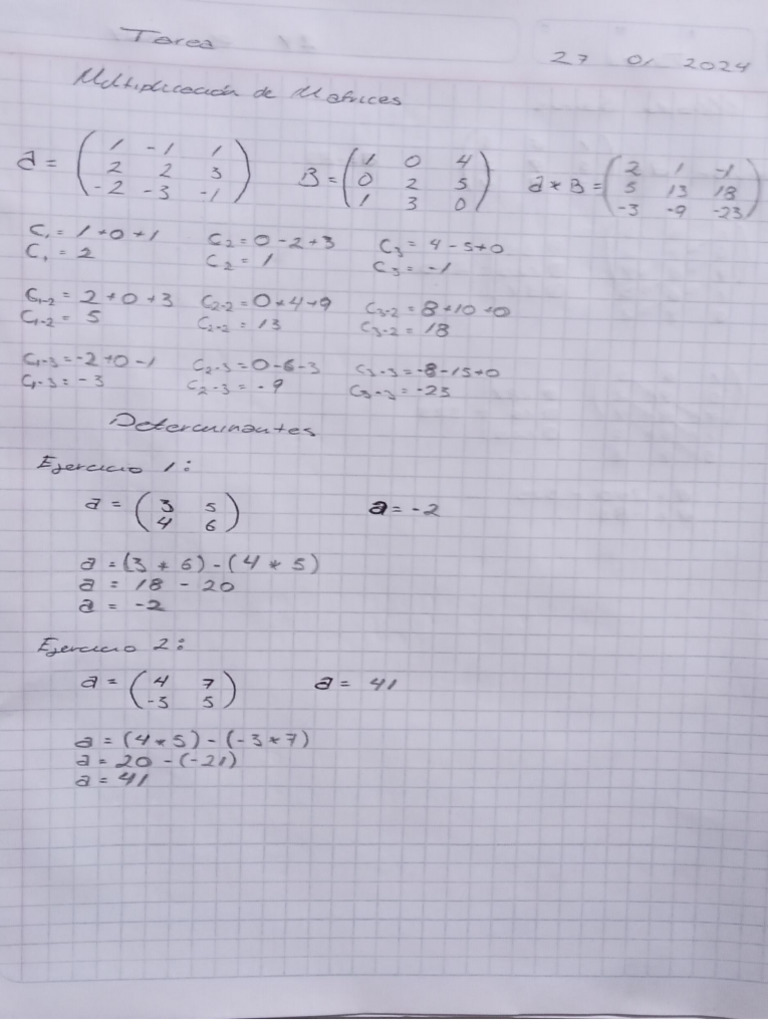 Tarea
27 01 2024
Multiplicación de Matrices
a = (1 -1 1
2 2 3
-2 -3 -1)
B = (1 0 4
0 2 5
1 3 0)
a * B = (2 1 -1
5 13 18
-3 -9 -23)
C1 = 1+0+1 C2 = 0-2+3 C3 = 4-5+0
C1 = 2 C2 = 1 C3 = -1
C1-2 = 2+0+3 C2-2 = 0+4+9 C3-2 = 8+10+0
C1-2 = 5 C2-2 = 13 C3-2 = 18
C1-3 = -2+0-1 C2-3 = 0-6-3 C3-3 = -8-15+0
C1-3 = -3 C2-3 = -9 C3-3 = -23
Determinantes
Ejercicio 1:
a = (3 5
4 6)
a = -2
a = (3 * 6) - (4 * 5)
a = 18 - 20
a = -2
Ejercicio 2:
a = (4 7
-3 5)
a = 41
a = (4*5) - (-3*7)
a = 20 - (-21)
a = 41